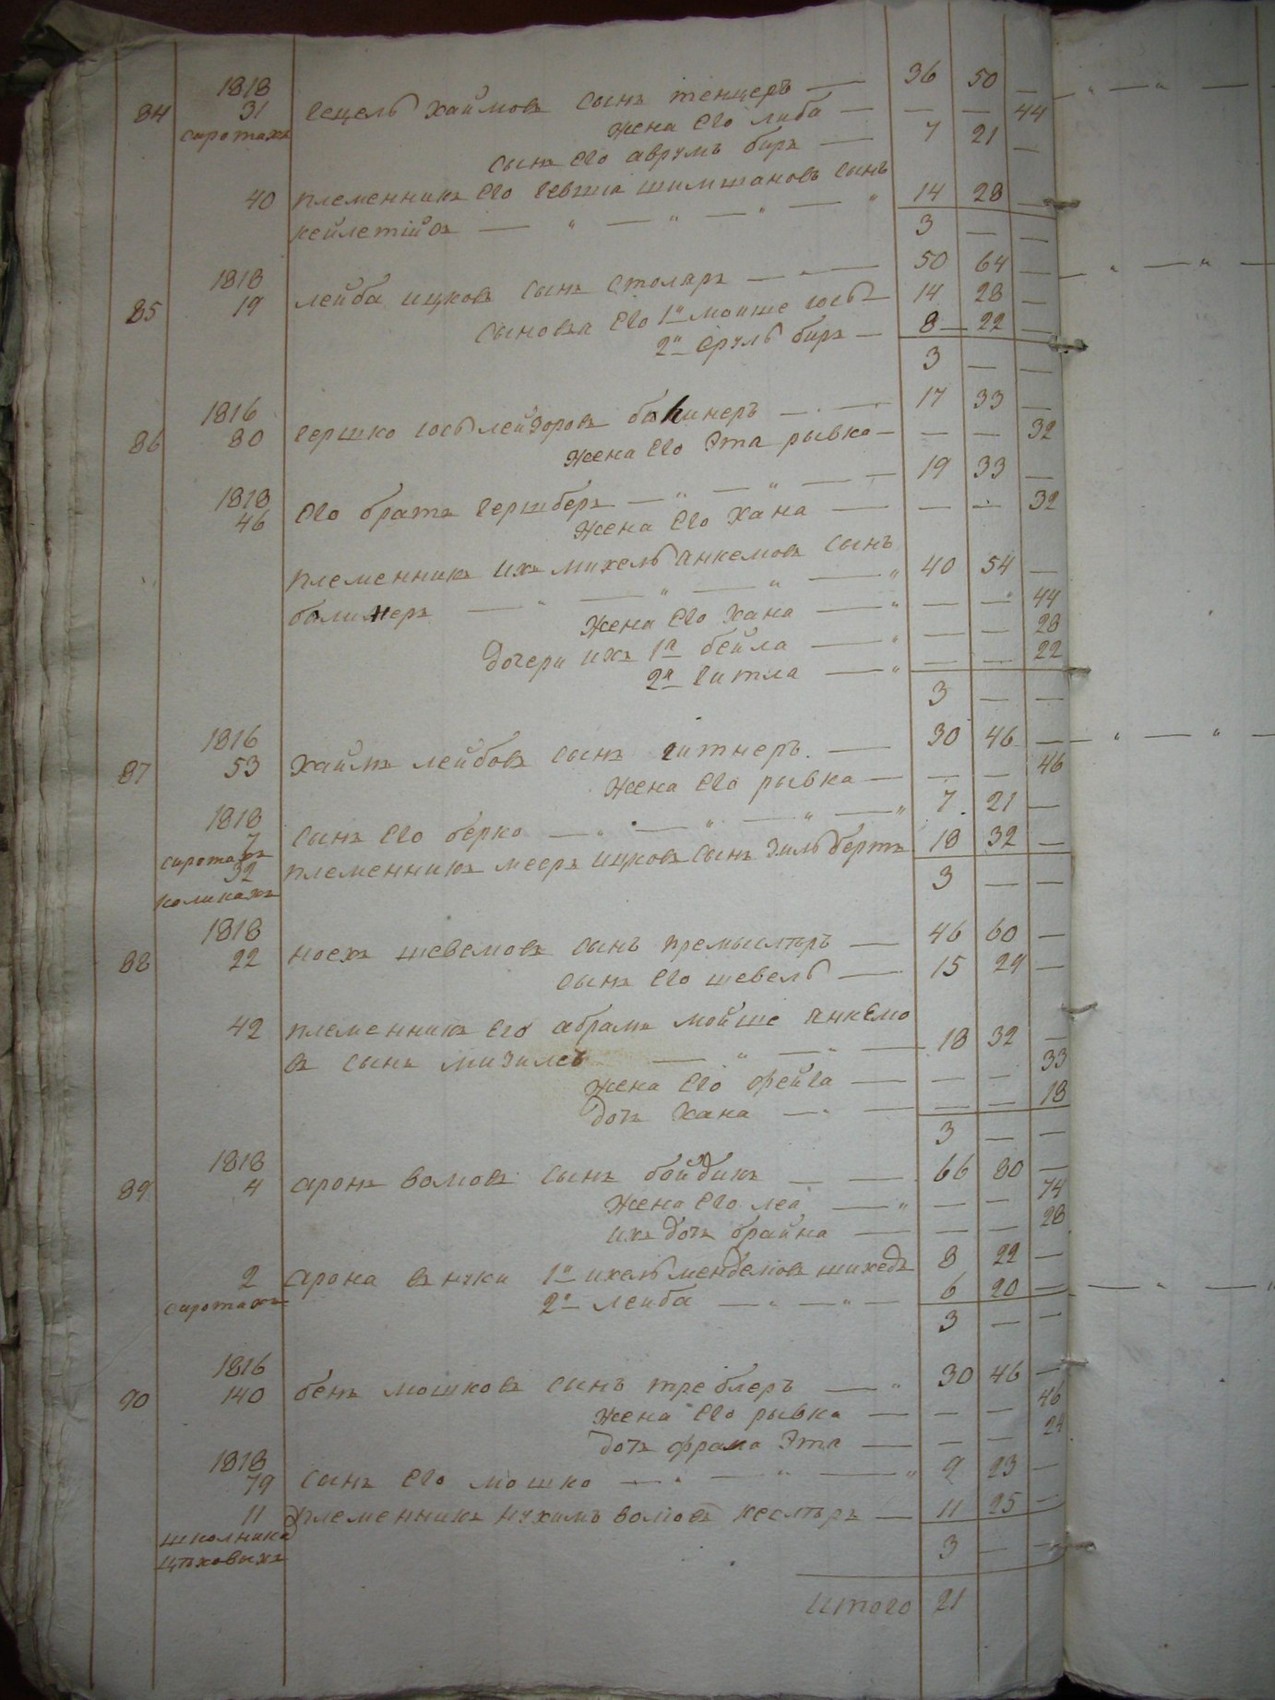 1818
84 31 Гецель Хаймовъ сынъ тенцеръ — 36 50 —
сиротахъ жена его либа — — — 44
сынъ его аврумъ биръ — 7 21 —
40 племенникъ его Гевшиа шимшановъ сынъ
14 28 —
3 — —
1818 50 64 —
85 19 лейба ицковъ сынъ столаръ —
сыновья его 1й мойше іосъ 14 28 —
2й сруль биръ — 8 22 —
3 — —
1816
86 80 Гершко іось лейзоровъ — 17 33 —
жена его Эта рывка — — — 32
1818
46 его братъ Гершберъ — 19 33 —
жена его Хана — — — 32
племенникъ ихъ михель Янкемовъ сынъ
40 54 —
жена его Хана — — — 44
дочери ихъ 1я бейла — — — 28
2я Гитла — — — 22
3 — —
1816
87 53 Хаимъ лейбовъ сынъ гитнеръ — 30 46 —
жена его рывка — — — 46
1818
7 сынъ его берко — 7 21 —
сиротахъ
32 племенникъ мееръ ицковъ сынъ Зильбертъ 18 32 —
каликахъ 3 — —
1818
88 22 носехъ шевемовъ сынъ премыслтъръ — 46 60 —
сынъ его шевель — 15 29 —
42 племенникъ его абрамъ мойше янкемо
въ сынъ мизилевъ — 18 32 —
жена его фейга — — — 33
дочь Хана — — — 18
3 — —
1818
89 4 аронъ вомовъ сынъ бойдикъ — 66 80 —
жена его леа — — — 74
ихъ дочь брайна — — — 28
2 арона внуки 1й ихель менделювъ шихедъ 8 22 —
сиротахъ 2й лейба — 6 20 —
3 — —
1816
90 140 бенъ мошковъ сынъ треблеръ — 30 46 —
жена его рывка — — — 46
дочь фрама Эта — — — 24
1818
79 сынъ его мошко — 9 23 —
11 племенникъ нухимъ вомовъ кеслтъръ — 11 25 —
школника
цѣховыхъ 3 — —
Итого 21